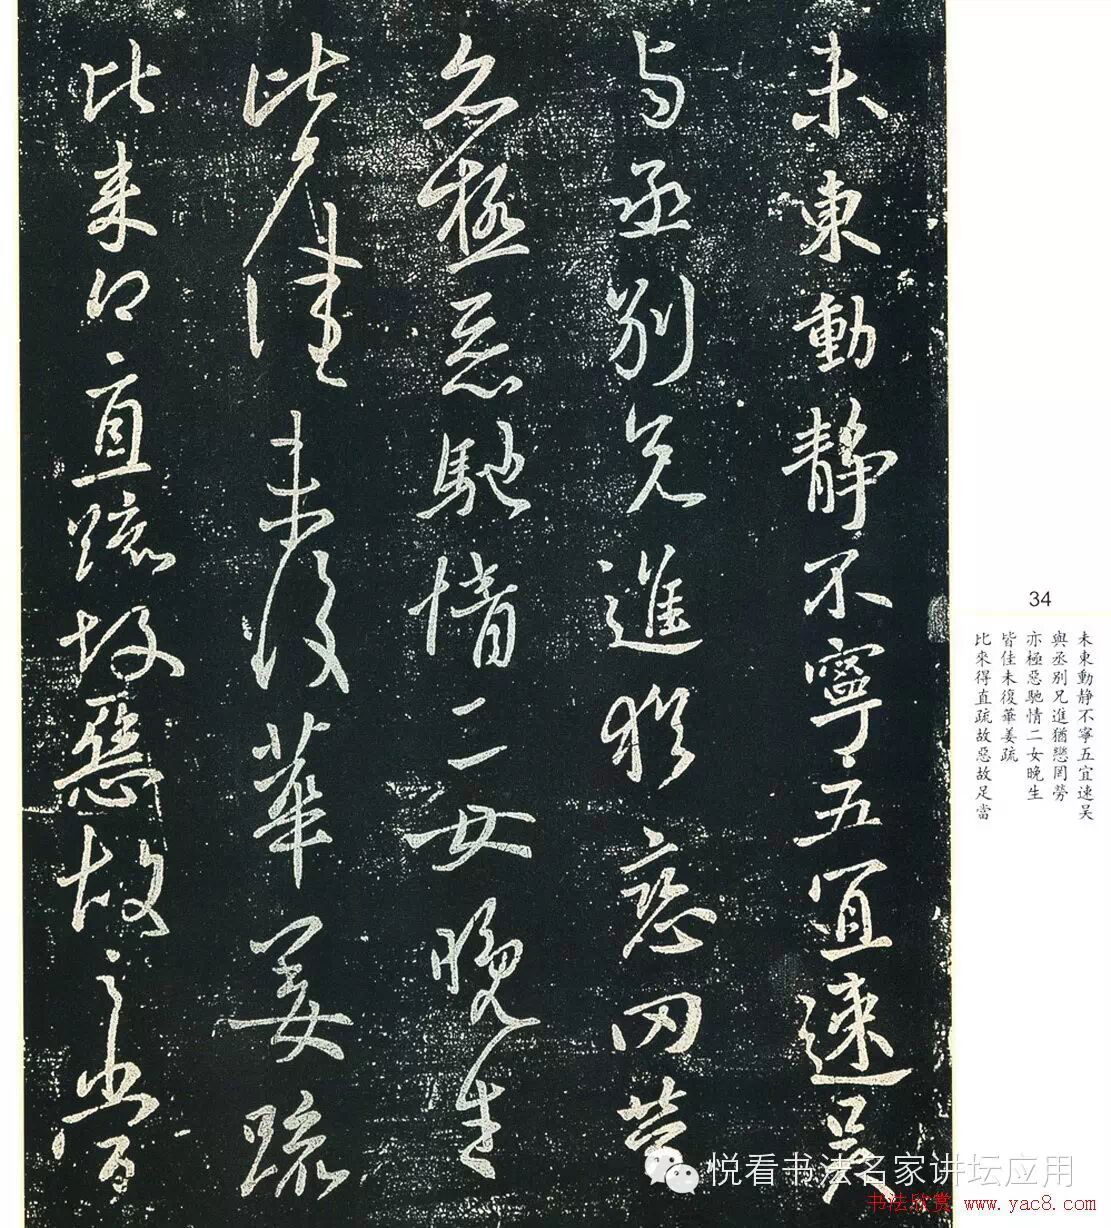 未東動静不寧五宜速吴
与丞别兄進猶戀罔勞
亦極惡馳情二女晚生
皆佳未復華姜疏
比来得直疏故惡故足當
34
未東動静不寧五宜速吴
與丞别兄進猶戀罔勞
亦極惡馳情二女晚生
皆佳未復華姜疏
比來得直疏故惡故足當
悦看书法名家讲坛应用
书法欣赏 www.yac8.com